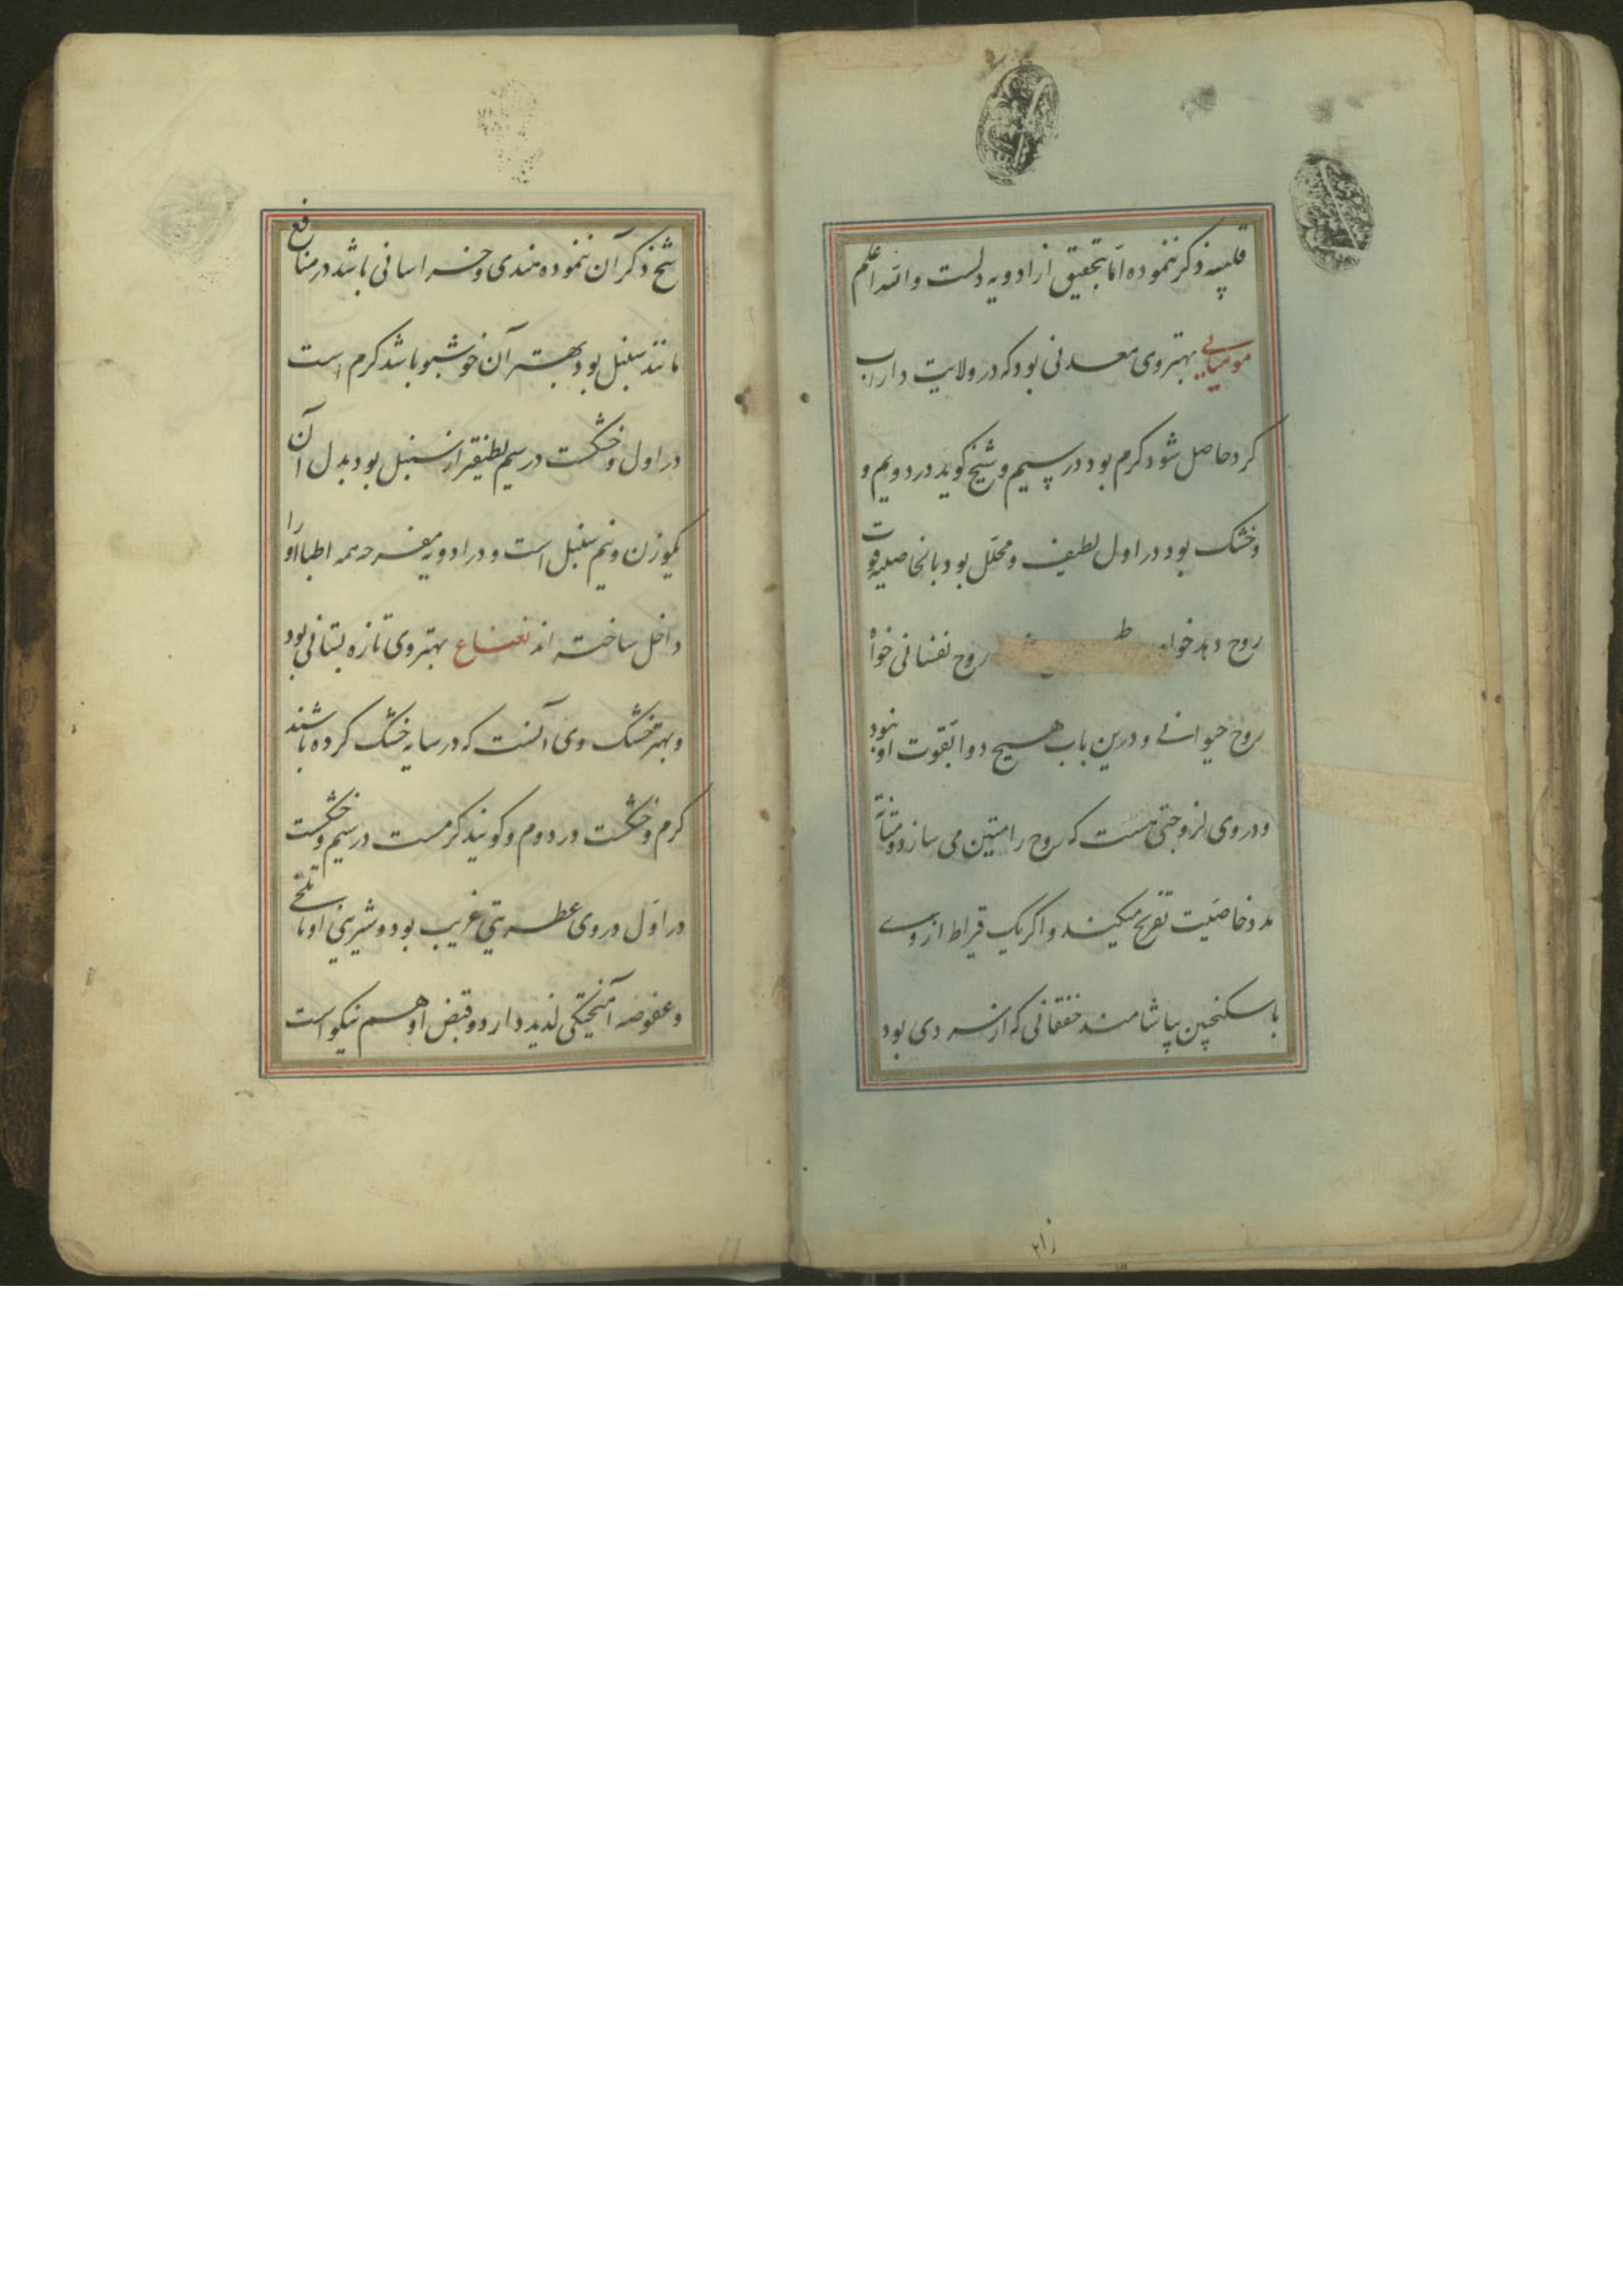 قلبیه ذکر ننموده اما بتحقیق از ادویه دلست والله اعلم
مومیایی بهتر وی معدنی بود که در ولایت داراب
کرد حاصل شود کرم بود در سیم و شیخ کوید در دویم و
و خشک بود در اول لطیف و محلل بود بالخاصیه قوت
روح دهد خواه روح نفسانی خواه
روح حیوانی و درین باب هیچ دوا بقوت او نبود
و در وی لزوجتی هست که روح را متین می سازد و متانة
مدد خاصیت تفریح میکند و اکر یک قیراط از وی
با سکنجبین بیاشامند خفقانی که از سردی بود
شیخ ذکر آن ننموده هندی و خراسانی باشد در منافع
مانند سنبل بود بهترآن خوشبو باشد کرم است
در اول و خشکست در سیم لطیفتر از سنبل بود بدل آن
یکوزن و نیم سنبل است و در ادویه مفرحه همه اطبا او را
داخل ساخته اند نعناع بهتر وی تازه بستانی بود
و بهتر خشک وی آنست که در سایه خشک کرده باشند
کرم و خشکست در دوم و کویند کرمست در سیم و خشکست
در اول در وی عطریتی غریب بود و شیرینی او با تلخی
و عفوصه آمیختکی لذیذ دارد و قبض او هم نیکو است